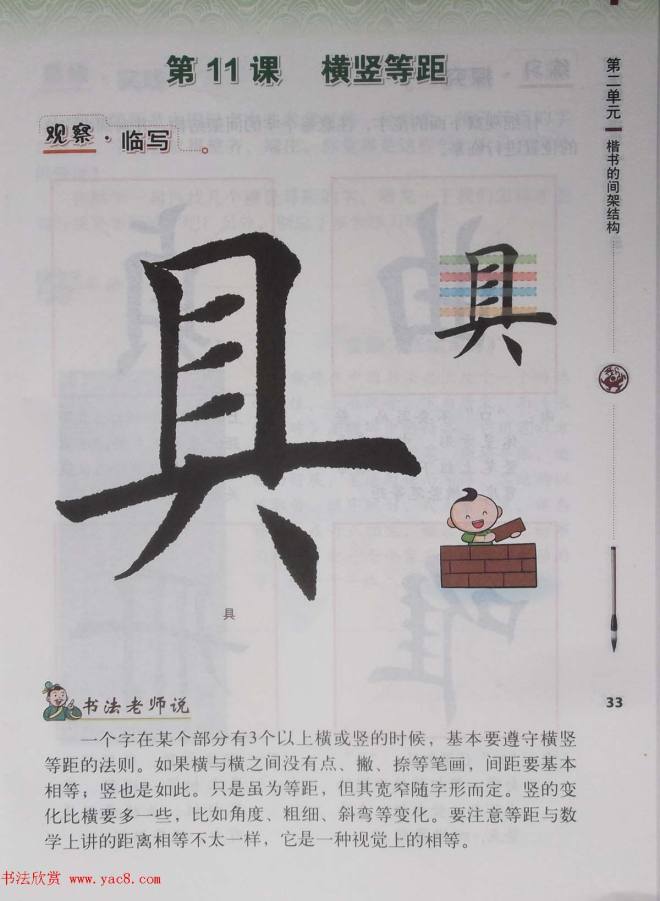 第11课 横竖等距
观察·临写
第二单元
楷书的间架结构
具
具
具
33
书法老师说
一个字在某个部分有3个以上横或竖的时候，基本要遵守横竖
等距的法则。如果横与横之间没有点、撇、捺等笔画，间距要基本
相等；竖也是如此。只是虽为等距，但其宽窄随字形而定。竖的变
化比横要多一些，比如角度、粗细、斜弯等变化。要注意等距与数
学上讲的距离相等不太一样，它是一种视觉上的相等。
书法欣赏 www.yac8.com